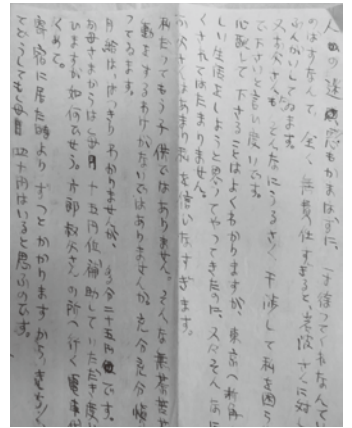 人の迷惑もかまはずに、一寸待ってくれなんて
のはずなんで、全く、無責任すぎると岩波さんに対し
ふんがいしてゐます。
又お父さんも、どんなにうるさく干渉して私を困ら
で下さいと言い度いです。
心配して下さることはよくわかりますが、東京へ来て
しい生活をしようと思ってやってきたのに、又々そんな
くされてはたまりません。
お父さんはあまり私を信じなすぎます。
私だってもう子供ではありません。そんな無茶苦茶
動をするわけがないではありませんか。充分充分
ってゐます。
月給は、はっきりわかりませんが、多分二十五円です。
お母さまからは毎月十五円位補助していただき度い
ひますが如何でせう。叔父さんの所へ行く電車
くめて。
に居た時よりずっとかかりますから、
てどうしても毎月四十円はいると思ふのです。